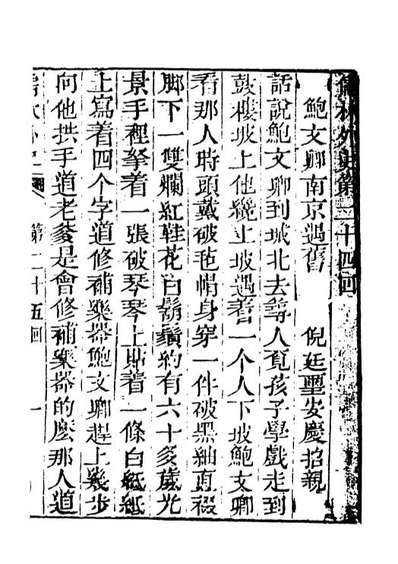 儒林外史第二十四回
鮑文卿南京遇舊　倪廷璽安慶招親
話說鮑文卿到城北去尋人覓孩子學戲走到
鼓樓坡上他纔上坡遇着一个人下坡鮑文卿
看那人時頭戴破毡帽身穿一件破黑紬直裰
脚下一雙爛紅鞋花白鬍鬚約有六十多歲光
景手裡拏着一張破琴琴上貼着一條白紙紙
上寫着四个字道修補樂器鮑文卿趕上幾步
向他拱手道老爹是會修補樂器的麽那人道
儒林外史　第二十五囘　一